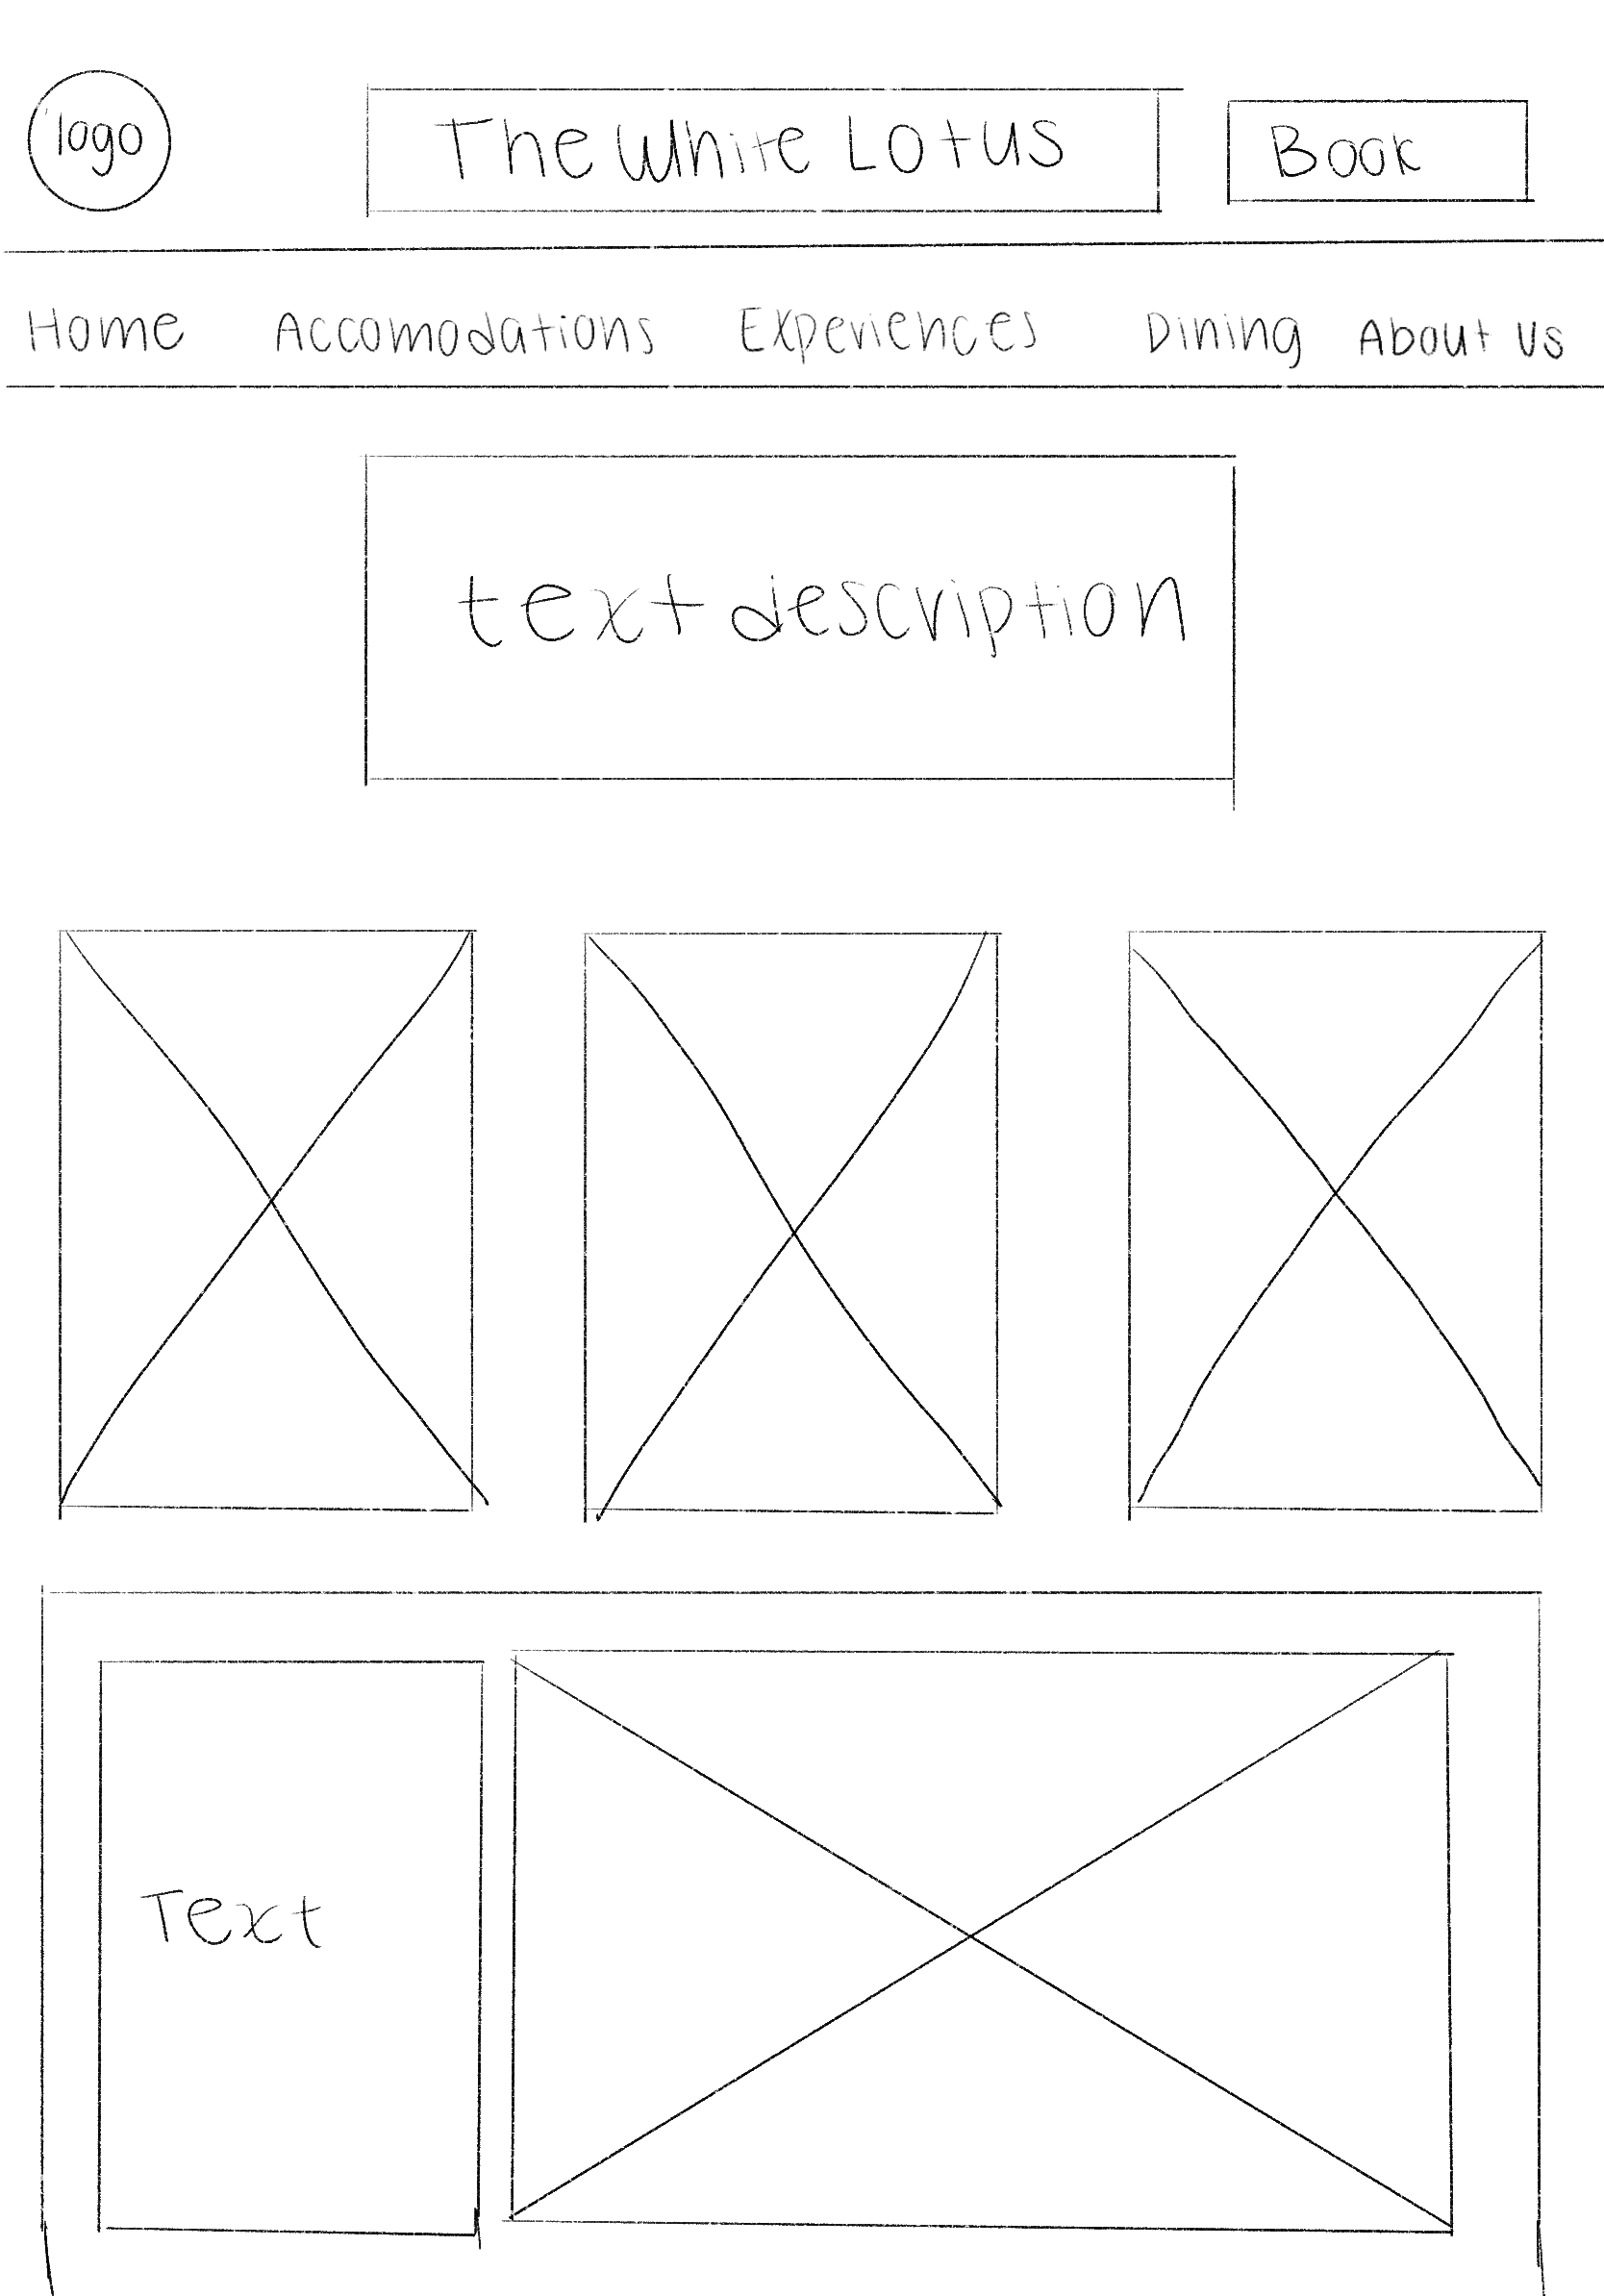 logo
The White Lotus
Book
Home Accomodations Experiences Dining About Us
text description
Text